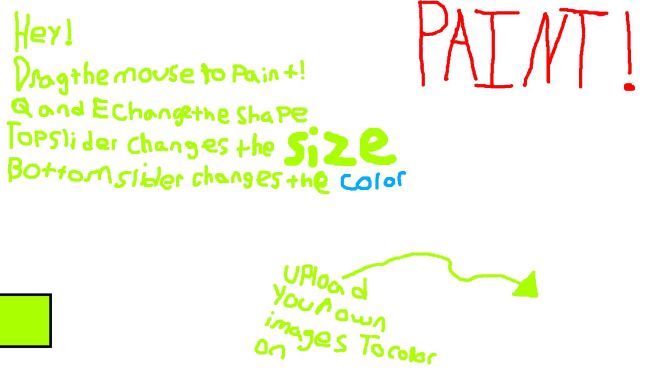 PAINT!
Hey!
Drag the mouse to paint!
Q and E Change the shape
Top slider changes the size
Bottom slider changes the color
Upload
your own
images To color
on